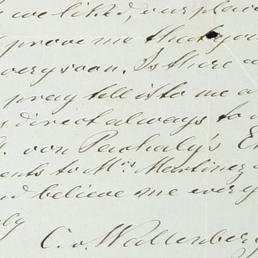 we liked, our plea
prove me that you
very soon. Is there a
pray tell it to me a
direct always to
von Pachalys E
ents to Mrs Martinez
nd believe me very
ly
C. v. Wallenberg